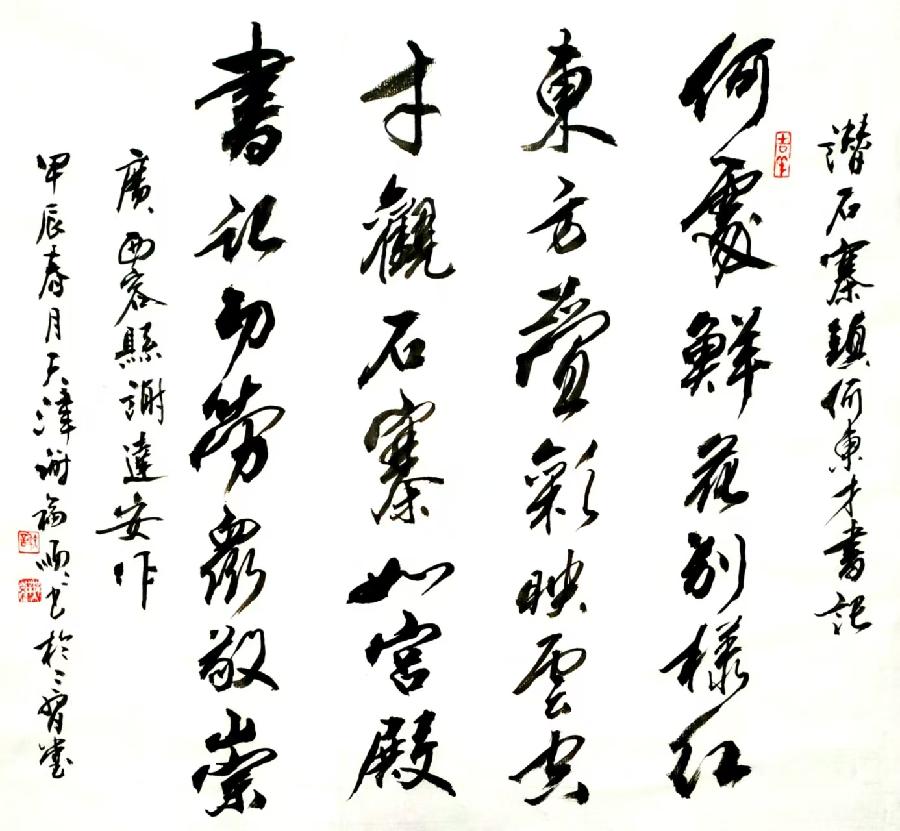 讃石寨鎮何東才書記
何處鮮花別樣紅
東方疊彩映雲空
才觀石寨如宮殿
書記功勞眾敬崇
廣西容縣謝達安作
甲辰春月天津謝福順書於三省堂